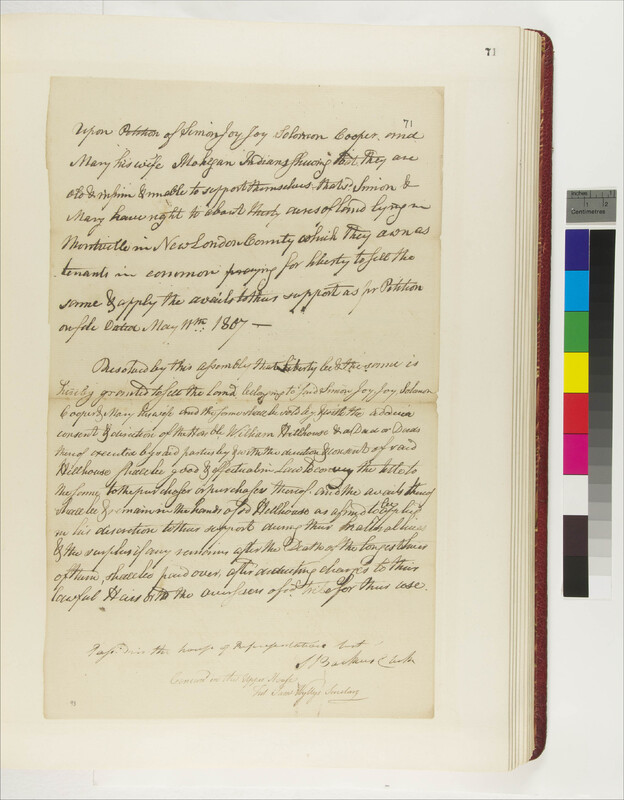 71
71
Upon Petition of Simon Joy Joy Solomon Cooper and
Mary his wife Mohegan Indians shewing that They are
old & infirm & unable to support themselves, that sd. Simon &
Mary have right to about thirty acres of land lying in
Montville in New London County which They own as
tenants in common praying for liberty to sell the
same & apply the avails to their support as pr Petition
on file Dated May 11th. 1807 —
Resolved by this Assembly that liberty be & the same is
hereby granted to sell the land belonging to said Simon Joy Joy, Solomon
Cooper & Mary his wife and the same shall be sold by & with the advice
consent & direction of the Honble William Hillhouse & a Deed or Deeds
thereof executed by said parties by & with the direction & consent of said
Hillhouse shall be good & effectual in Law to convey the title to
the same to the purchaser or purchasers thereof and the avails thereof
shall be & remain in the hands of sd Hillhouse as a fund to be applyd
in his discretion to their support during their natural lives
& the surplus if any remains after the Death of the longest liver
of them, shall be paid over, after deducting charges to their
lawful Heirs or to the overseers of sd. tribe for their use.
Passd. in the house of Representatives test
Backus Clerk
Concurd in the Upper House
Test Saml Wyllys Secretary
inches
1
Centimetres
1
2